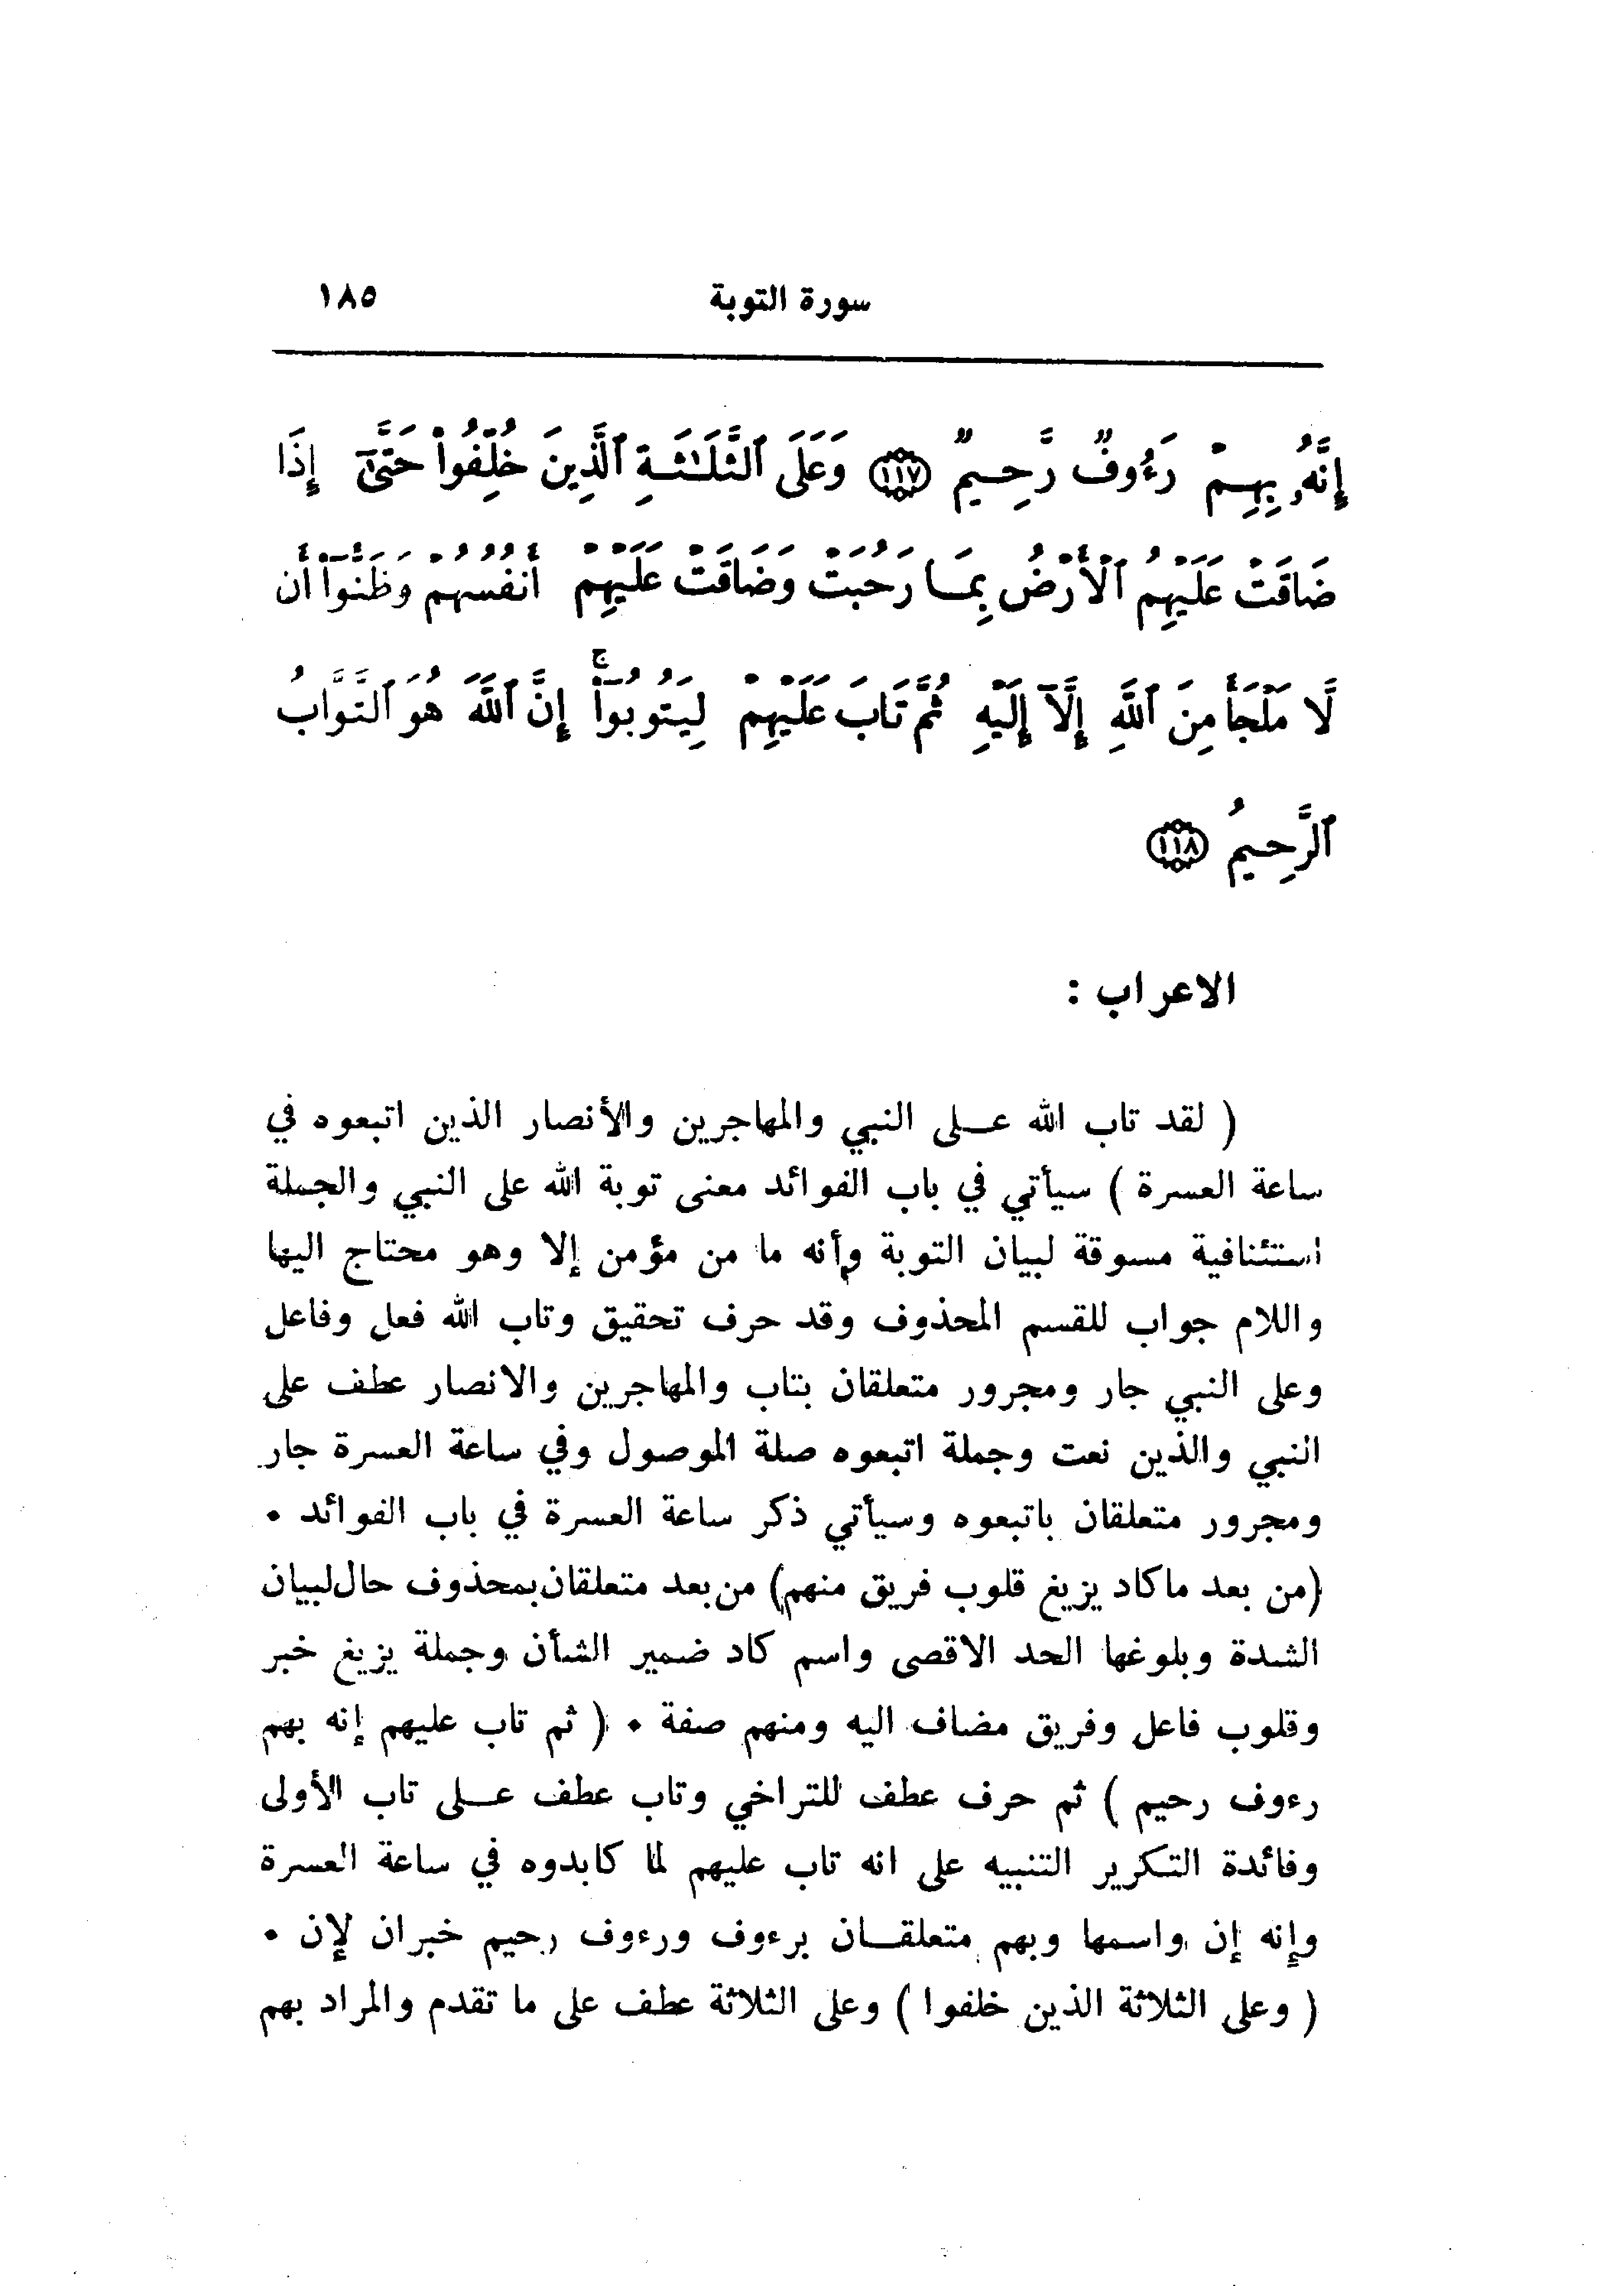 سورة التوبة ١٨٥
إِنَّهُۥ بِهِمْ رَءُوفٌ رَّحِيمٌ ﴿١١٧﴾ وَعَلَى ٱلثَّلَـٰثَةِ ٱلَّذِينَ خُلِّفُوا۟ حَتَّىٰٓ إِذَا
ضَاقَتْ عَلَيْهِمُ ٱلْأَرْضُ بِمَا رَحُبَتْ وَضَاقَتْ عَلَيْهِمْ أَنفُسُهُمْ وَظَنُّوٓا۟ أَن
لَّا مَلْجَأَ مِنَ ٱللَّهِ إِلَّآ إِلَيْهِ ثُمَّ تَابَ عَلَيْهِمْ لِيَتُوبُوٓا۟ ۚ إِنَّ ٱللَّهَ هُوَ ٱلتَّوَّابُ
ٱلرَّحِيمُ ﴿١١٨﴾
الاعراب :
( لقد تاب الله عـلى النبي والمهاجرين والأنصار الذين اتبعوه في
ساعة العسرة ) سيأتي في باب الفوائد معنى توبة الله على النبي والجملة
استئنافية مسوقة لبيان التوبة وأنه ما من مؤمن إلا وهو محتاج اليها
واللام جواب للقسم المحذوف وقد حرف تحقيق وتاب الله فعل وفاعل
وعلى النبي جار ومجرور متعلقان بتاب والمهاجرين والانصار عطف على
النبي والذين نعت وجملة اتبعوه صلة الموصول وفي ساعة العسرة جار
ومجرور متعلقان باتبعوه وسيأتي ذكر ساعة العسرة في باب الفوائد •
(من بعد ماكاد يزيغ قلوب فريق منهم) من بعد متعلقان بمحذوف حال لبيان
الشدة وبلوغها الحد الاقصى واسم كاد ضمير الشأن وجملة يزيغ خبر
وقلوب فاعل وفريق مضاف اليه ومنهم صفة • ( ثم تاب عليهم إنه بهم
رءوف رحيم ) ثم حرف عطف للتراخي وتاب عطف عـلى تاب الأولى
وفائدة التكرير التنبيه على انه تاب عليهم لما كابدوه في ساعة العسرة
وإنه إن واسمها وبهم متعلقـان برءوف ورءوف رحيم خبران لإن •
( وعلى الثلاثة الذين خلفوا ) وعلى الثلاثة عطف على ما تقدم والمراد بهم